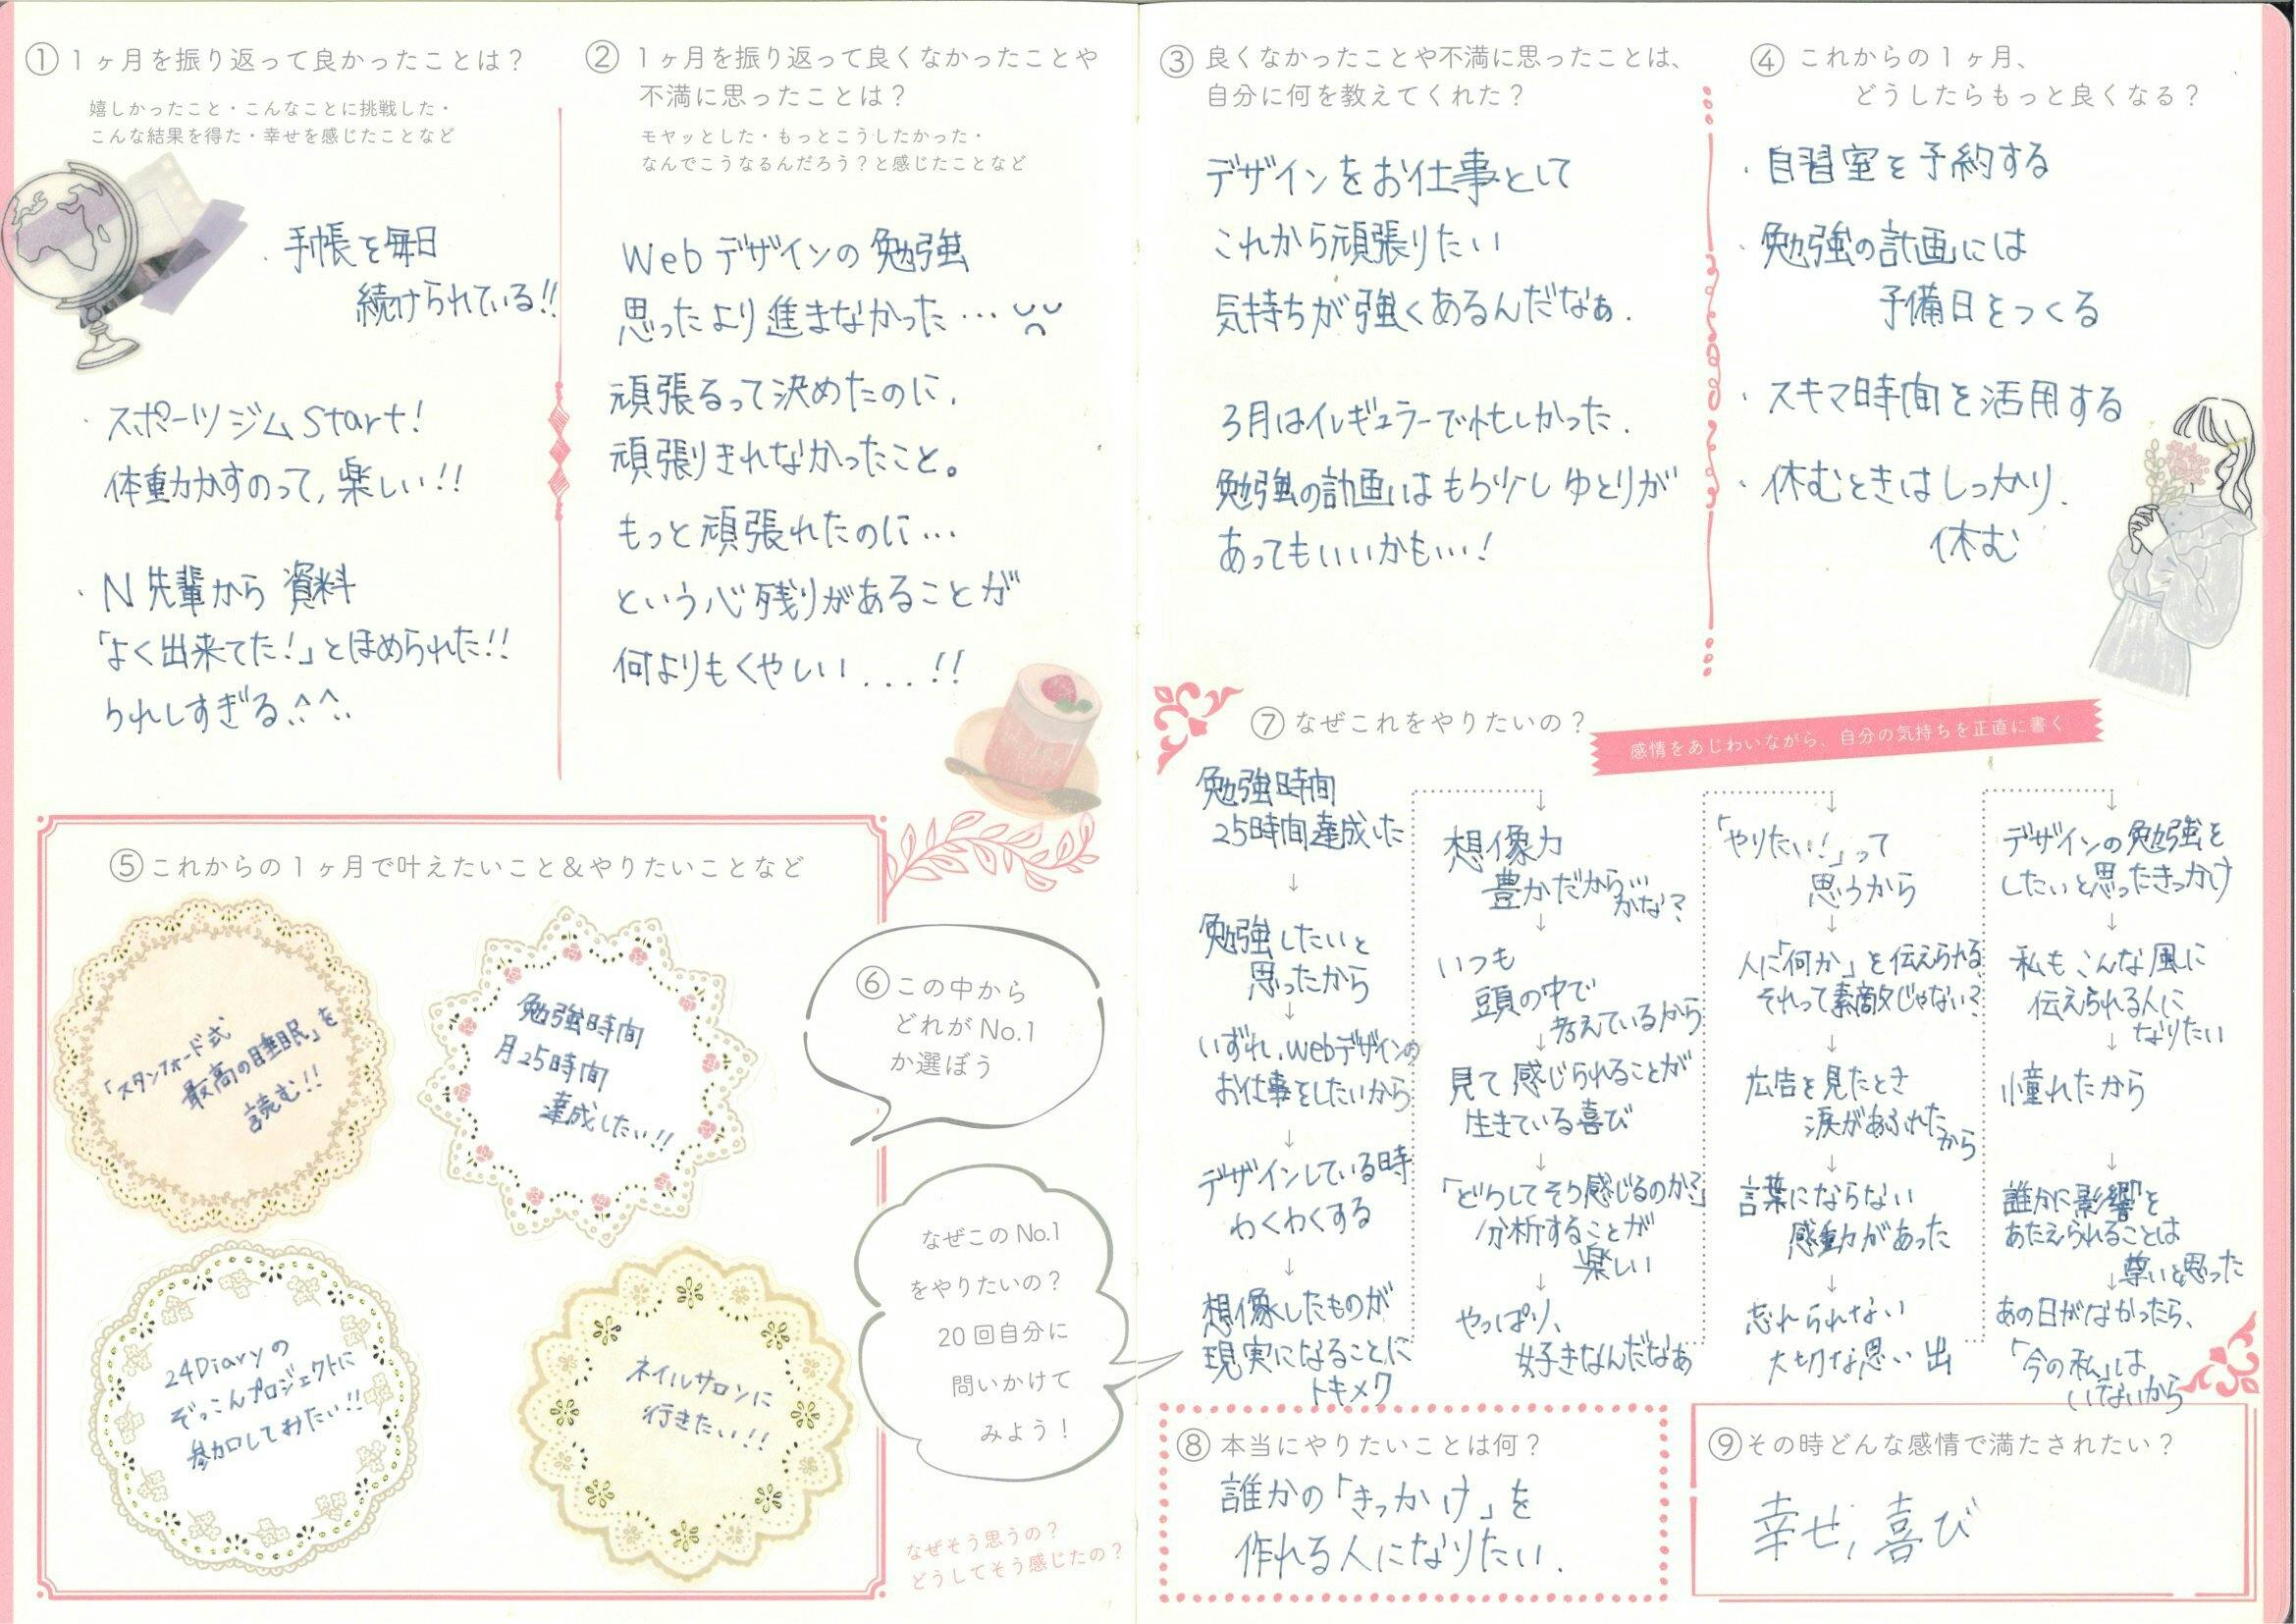 ① 1ヶ月を振り返って良かったことは？
嬉しかったこと・こんなことに挑戦した・
こんな結果を得た・幸せを感じたことなど
・手帳を毎日
続けられている!!
・スポーツジム Start!
体動かすのって、楽しい!!
・N先輩から 資料
「よく出来てた!」とほめられた!!
うれしすぎる ^^
② 1ヶ月を振り返って良くなかったことや
不満に思ったことは？
モヤッとした・もっとこうしたかった・
なんでこうなるんだろう？と感じたことなど
Webデザインの勉強
思ったより進まなかった…
頑張るって決めたのに、
頑張りきれなかったこと。
もっと頑張れたのに…
という心残りがあることが
何よりもくやしい...!!
③ 良くなかったことや不満に思ったことは、
自分に何を教えてくれた？
デザインをお仕事として
これから頑張りたい
気持ちが強くあるんだなぁ.
3月はイレギュラーで忙しかった.
勉強の計画はもう少しゆとりが
あってもいいかも…!
④ これからの1ヶ月、
どうしたらもっと良くなる？
・自習室を予約する
・勉強の計画には
予備日をつくる
・スキマ時間を活用する
・休むときはしっかり.
休む
⑤これからの1ヶ月で叶えたいこと＆やりたいことなど
「スタンフォード式
最高の睡眠」を
読む!!
勉強時間
月25時間
達成したい!!
24Diaryの
ぞっこんプロジェクトに
参加してみたい!!
ネイルサロンに
行きたい!!
⑥この中から
どれがNo.1
か選ぼう
なぜこのNo.1
をやりたいの？
20回自分に
問いかけて
みよう！
なぜそう思うの？
どうしてそう感じたの？
⑦ なぜこれをやりたいの？
感情をあじわいながら、自分の気持ちを正直に書く
勉強時間
25時間達成した
↓
勉強したいと
思ったから
↓
いずれ、Webデザインの
お仕事をしたいから
↓
デザインしている時
わくわくする
↓
想像したものが
現実になることに
トキメク
↓
想像力
豊かだから…
かな?
↓
いつも
頭の中で
考えているから
↓
見て感じられることが
生きている喜び
↓
「どうしてそう感じるのか?」
分析することが
楽しい
↓
やっぱり、
好きなんだなぁ
↓
「やりたい!」って
思うから
↓
人に「何か」を伝えられる
それって素敵じゃない?
↓
広告を見たとき
涙があふれた
から
↓
言葉にならない
感動があった
↓
忘れられない
大切な思い出
↓
デザインの勉強を
したいと思ったきっかけ
↓
私もこんな風に
伝えられる人に
なりたい
↓
憧れたから
↓
誰かに影響を
あたえられることは
尊いと思った
↓
あの日がなかったら、
「今の私」は
いないから
⑧ 本当にやりたいことは何？
誰かの「きっかけ」を
作れる人になりたい.
⑨その時どんな感情で満たされたい？
幸せ, 喜び